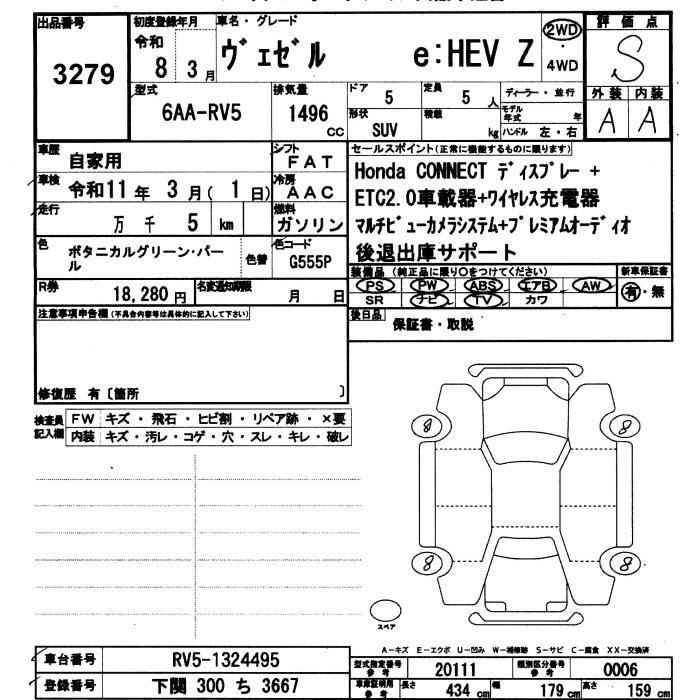 出品番号
3279
初度登録年月
令和
8 3月
車名・グレード
ヴェゼル e:HEV Z
2WD
・
4WD
評価点
S
外装 内装
A A
型式
6AA-RV5
排気量
1496
CC
ドア
5
定員
5 人
形状
SUV
積載
kg
ディーラー・並行
モデル年式 年
ハンドル 左・右
車歴
自家用
シフト
FAT
車検
令和11年 3月(1日)
冷房
AAC
走行
万 千 5 km
燃料
ガソリン
色
ボタニカルグリーン・パール
色替
色コード
G555P
R券
18,280円
名変通知期限
月 日
セールスポイント(正常に機能するものに限ります)
Honda CONNECT ディスプレー +
ETC2.0車載器+ワイヤレス充電器
マルチビューカメラシステム+プレミアムオーディオ
後退出庫サポート
装備品 (純正品に限り○をつけてください)
PS PW ABS エアB AW
SR ナビ TV カワ
新車保証書
有・無
後日品
保証書・取説
注意事項申告欄(不具合内容等は具体的に記入して下さい)
修復歴 有〔箇所 〕
検査員記入欄
FW キズ・飛石・ヒビ割・リペア跡・×要
内装 キズ・汚レ・コゲ・穴・スレ・キレ・破レ
8 8
8 8
スペア
A-キズ E-エクボ U-凹み W-補修跡 S-サビ C-腐食 XX-交換済
車台番号
RV5-1324495
登録番号
下関 300 ち 3667
型式指定番号
参考
20111
類別区分番号
参考
0006
車庫証明用
参考
長さ 434 cm
幅 179 cm
高さ 159 cm